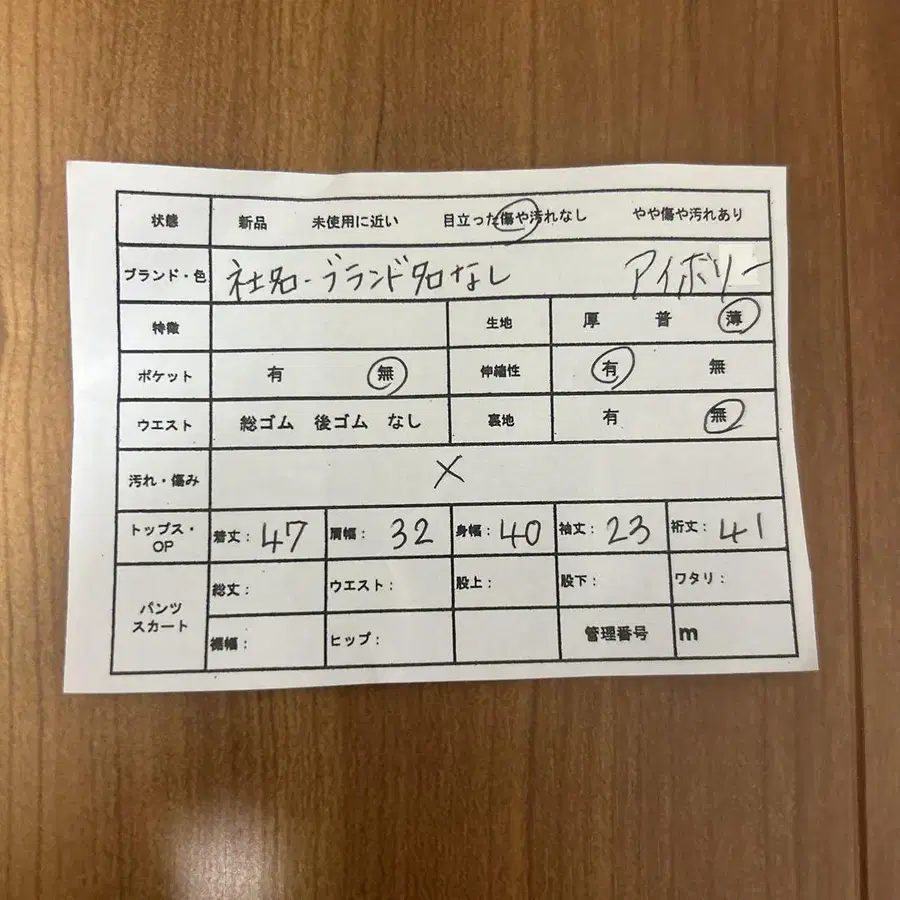 状態 新品 未使用に近い 目立った傷や汚れなし やや傷や汚れあり
ブランド・色 社名・ブランド名なし アイボリー
特徴 生地 厚 普 薄
ポケット 有 無 伸縮性 有 無
ウエスト 総ゴム 後ゴム なし 裏地 有 無
汚れ・傷み ×
トップス・OP 着丈：47 肩幅：32 身幅：40 袖丈：23 裄丈：41
パンツ スカート 総丈： ウエスト： 股上： 股下： ワタリ：
裾幅： ヒップ： 管理番号 m